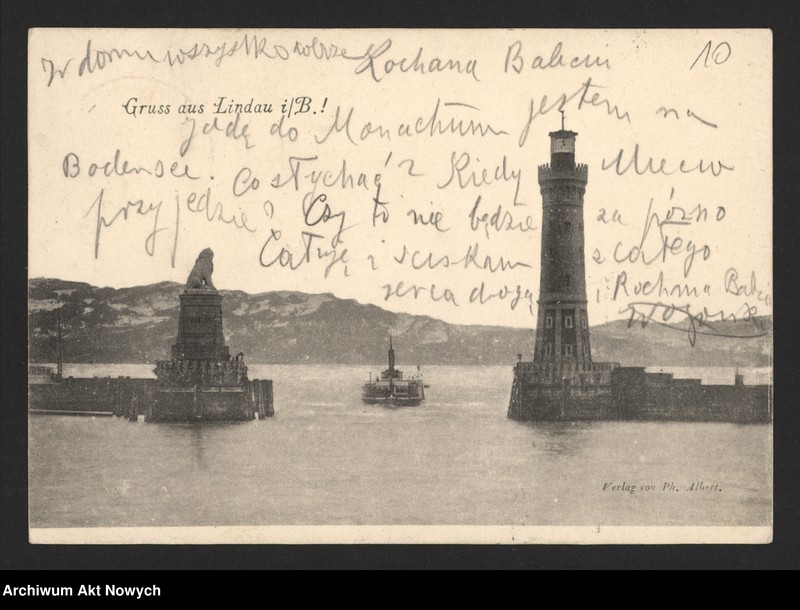 W domu wszystko dobrze Kochana Babciu
10
Gruss aus Lindau i/B.!
Jadę do Monachium jestem na
Bodensee. Co słychać? Kiedy Miecio
przyjedzie? Czy to nie będzie za późno
Całuję i ściskam z całego
serca drogą i Kochaną Babcię
Verlag von Ph. Albert.
Archiwum Akt Nowych